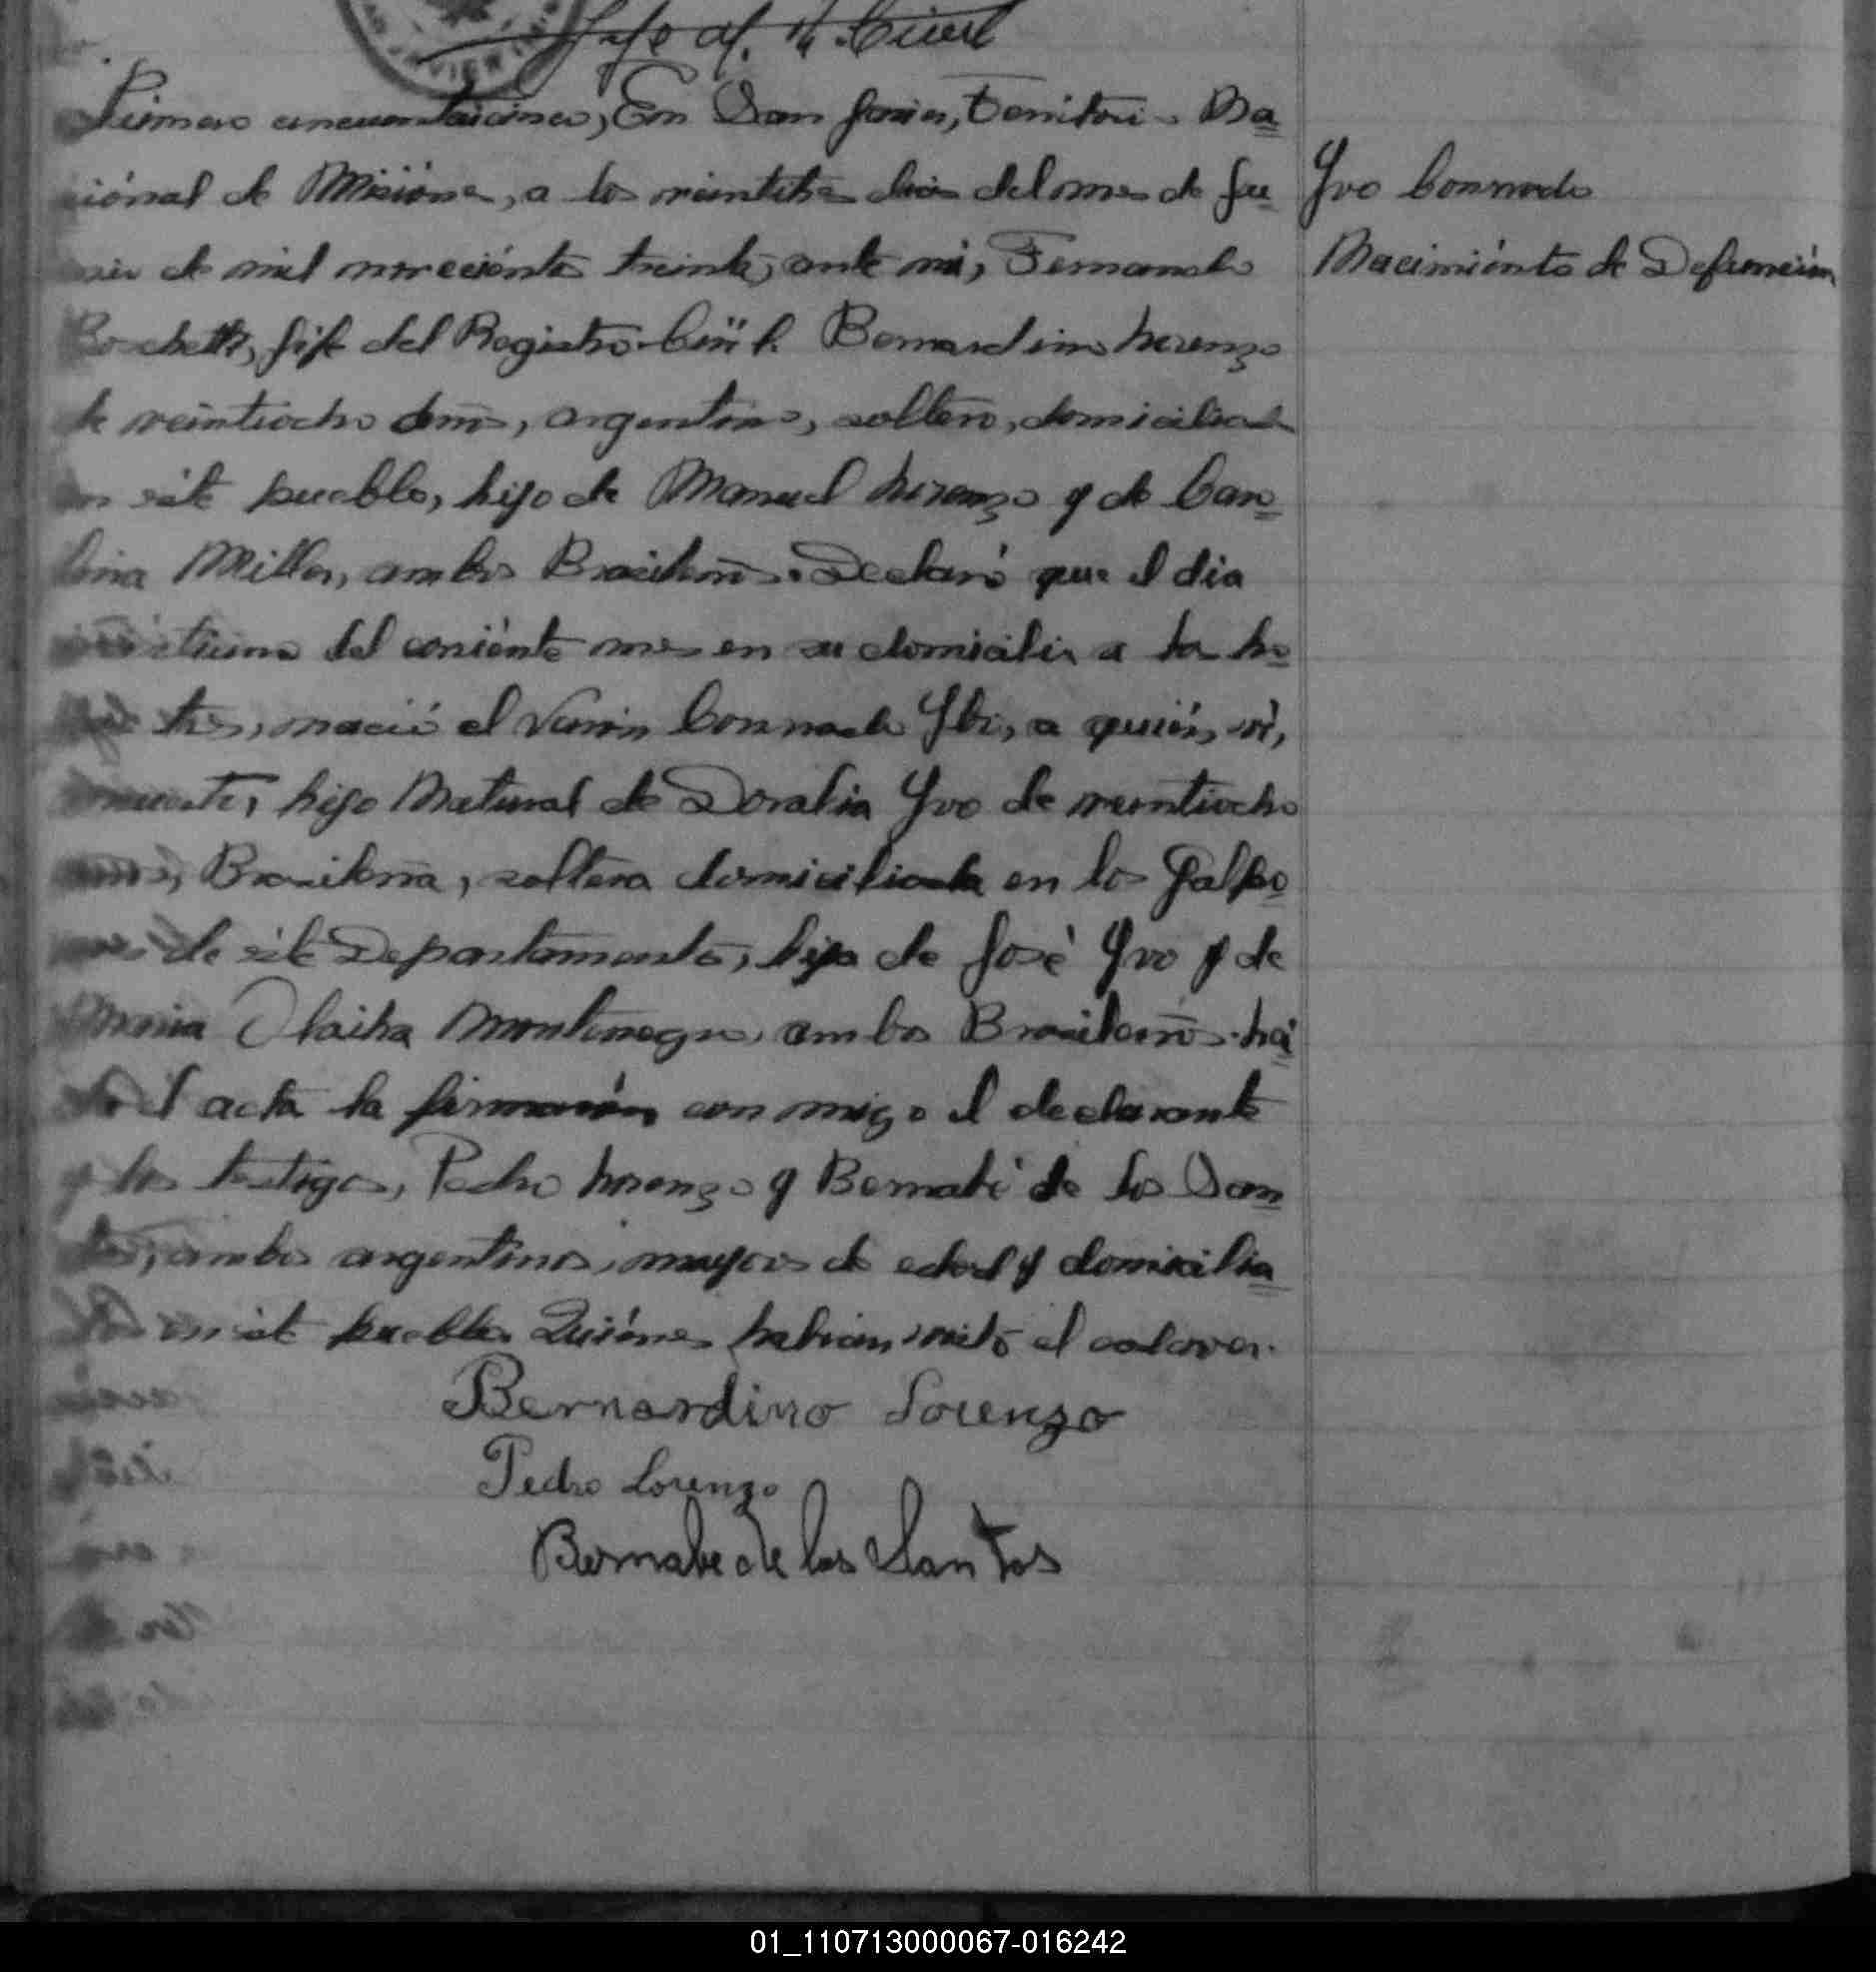 Jefe del R. Civil
Número cincuenticinco, En San Javier, Territorio Na
cional de Misiones, a los veintitrés dias del mes de Ju
nio de mil novecientos treinta, ante mi, Fernando
Jefe del Registro Civil. Bernardino Lorenzo
de veintiocho años, argentino, soltero, domiciliado
en éste pueblo, hijo de Manuel Lorenzo y de Caro
lina Miller, ambos Brasileños. Declaró que el dia
del corriente mes en su domicilio a las ho
tres, nació el Varón Conrado Ybo, a quién ví,
muerto, hijo Natural de Doralia Yvo de veintiocho
años, Brasileña, soltera domiciliada en los Galpo
nes de éste Departamento, hija de José Yvo y de
Maria Olaiha Montenegro, ambos Brasileños. Leí
da el acta la firmarón con migo el declarante
y los testigos, Pedro Lorenzo y Bernabé de los San
tos, ambos argentinos, mayores de edad y domicilia
dos en éste pueblo. Quiénes habian visto el cadaver.
Bernardino Lorenzo
Pedro Lorenzo
Bernabe de los Santos
Yvo Conrado
Nacimiénto de Defunción
01_110713000067-016242